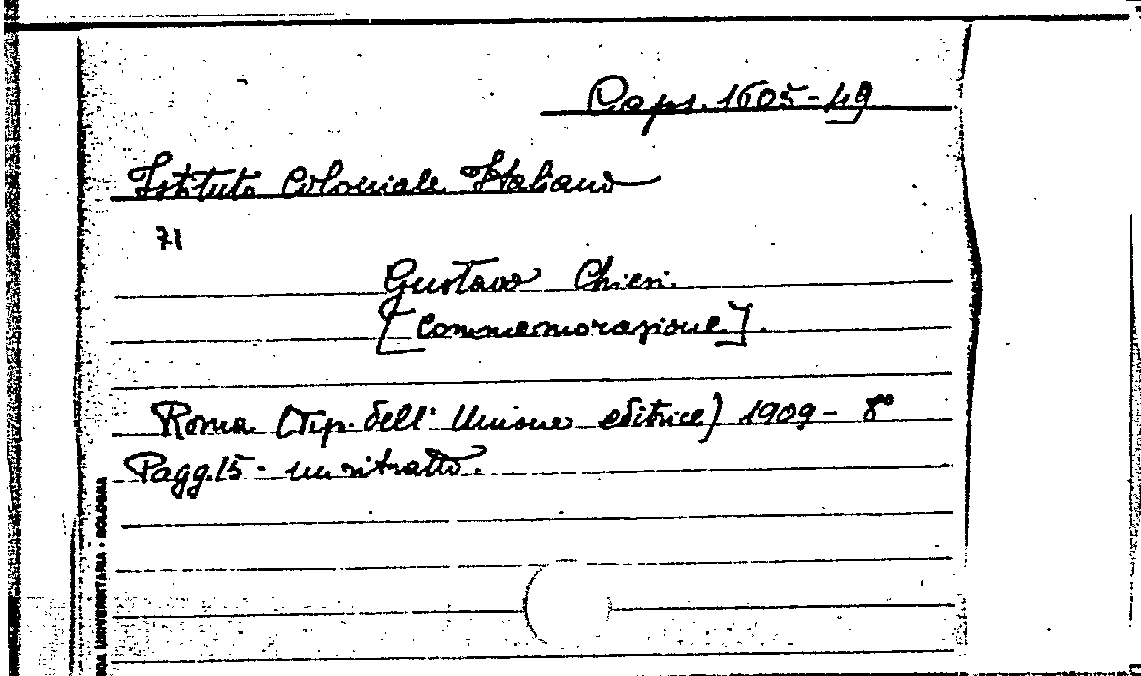 Caps. 1605-49
Istituto Coloniale Italiano
71
Gustavo Chiesi.
[Commemorazione].
Roma (Tip. dell' Unione editrice) 1909 - 8°
Pagg. 15 - un ritratto.
UNIVERSITARIA - BOLOGNA